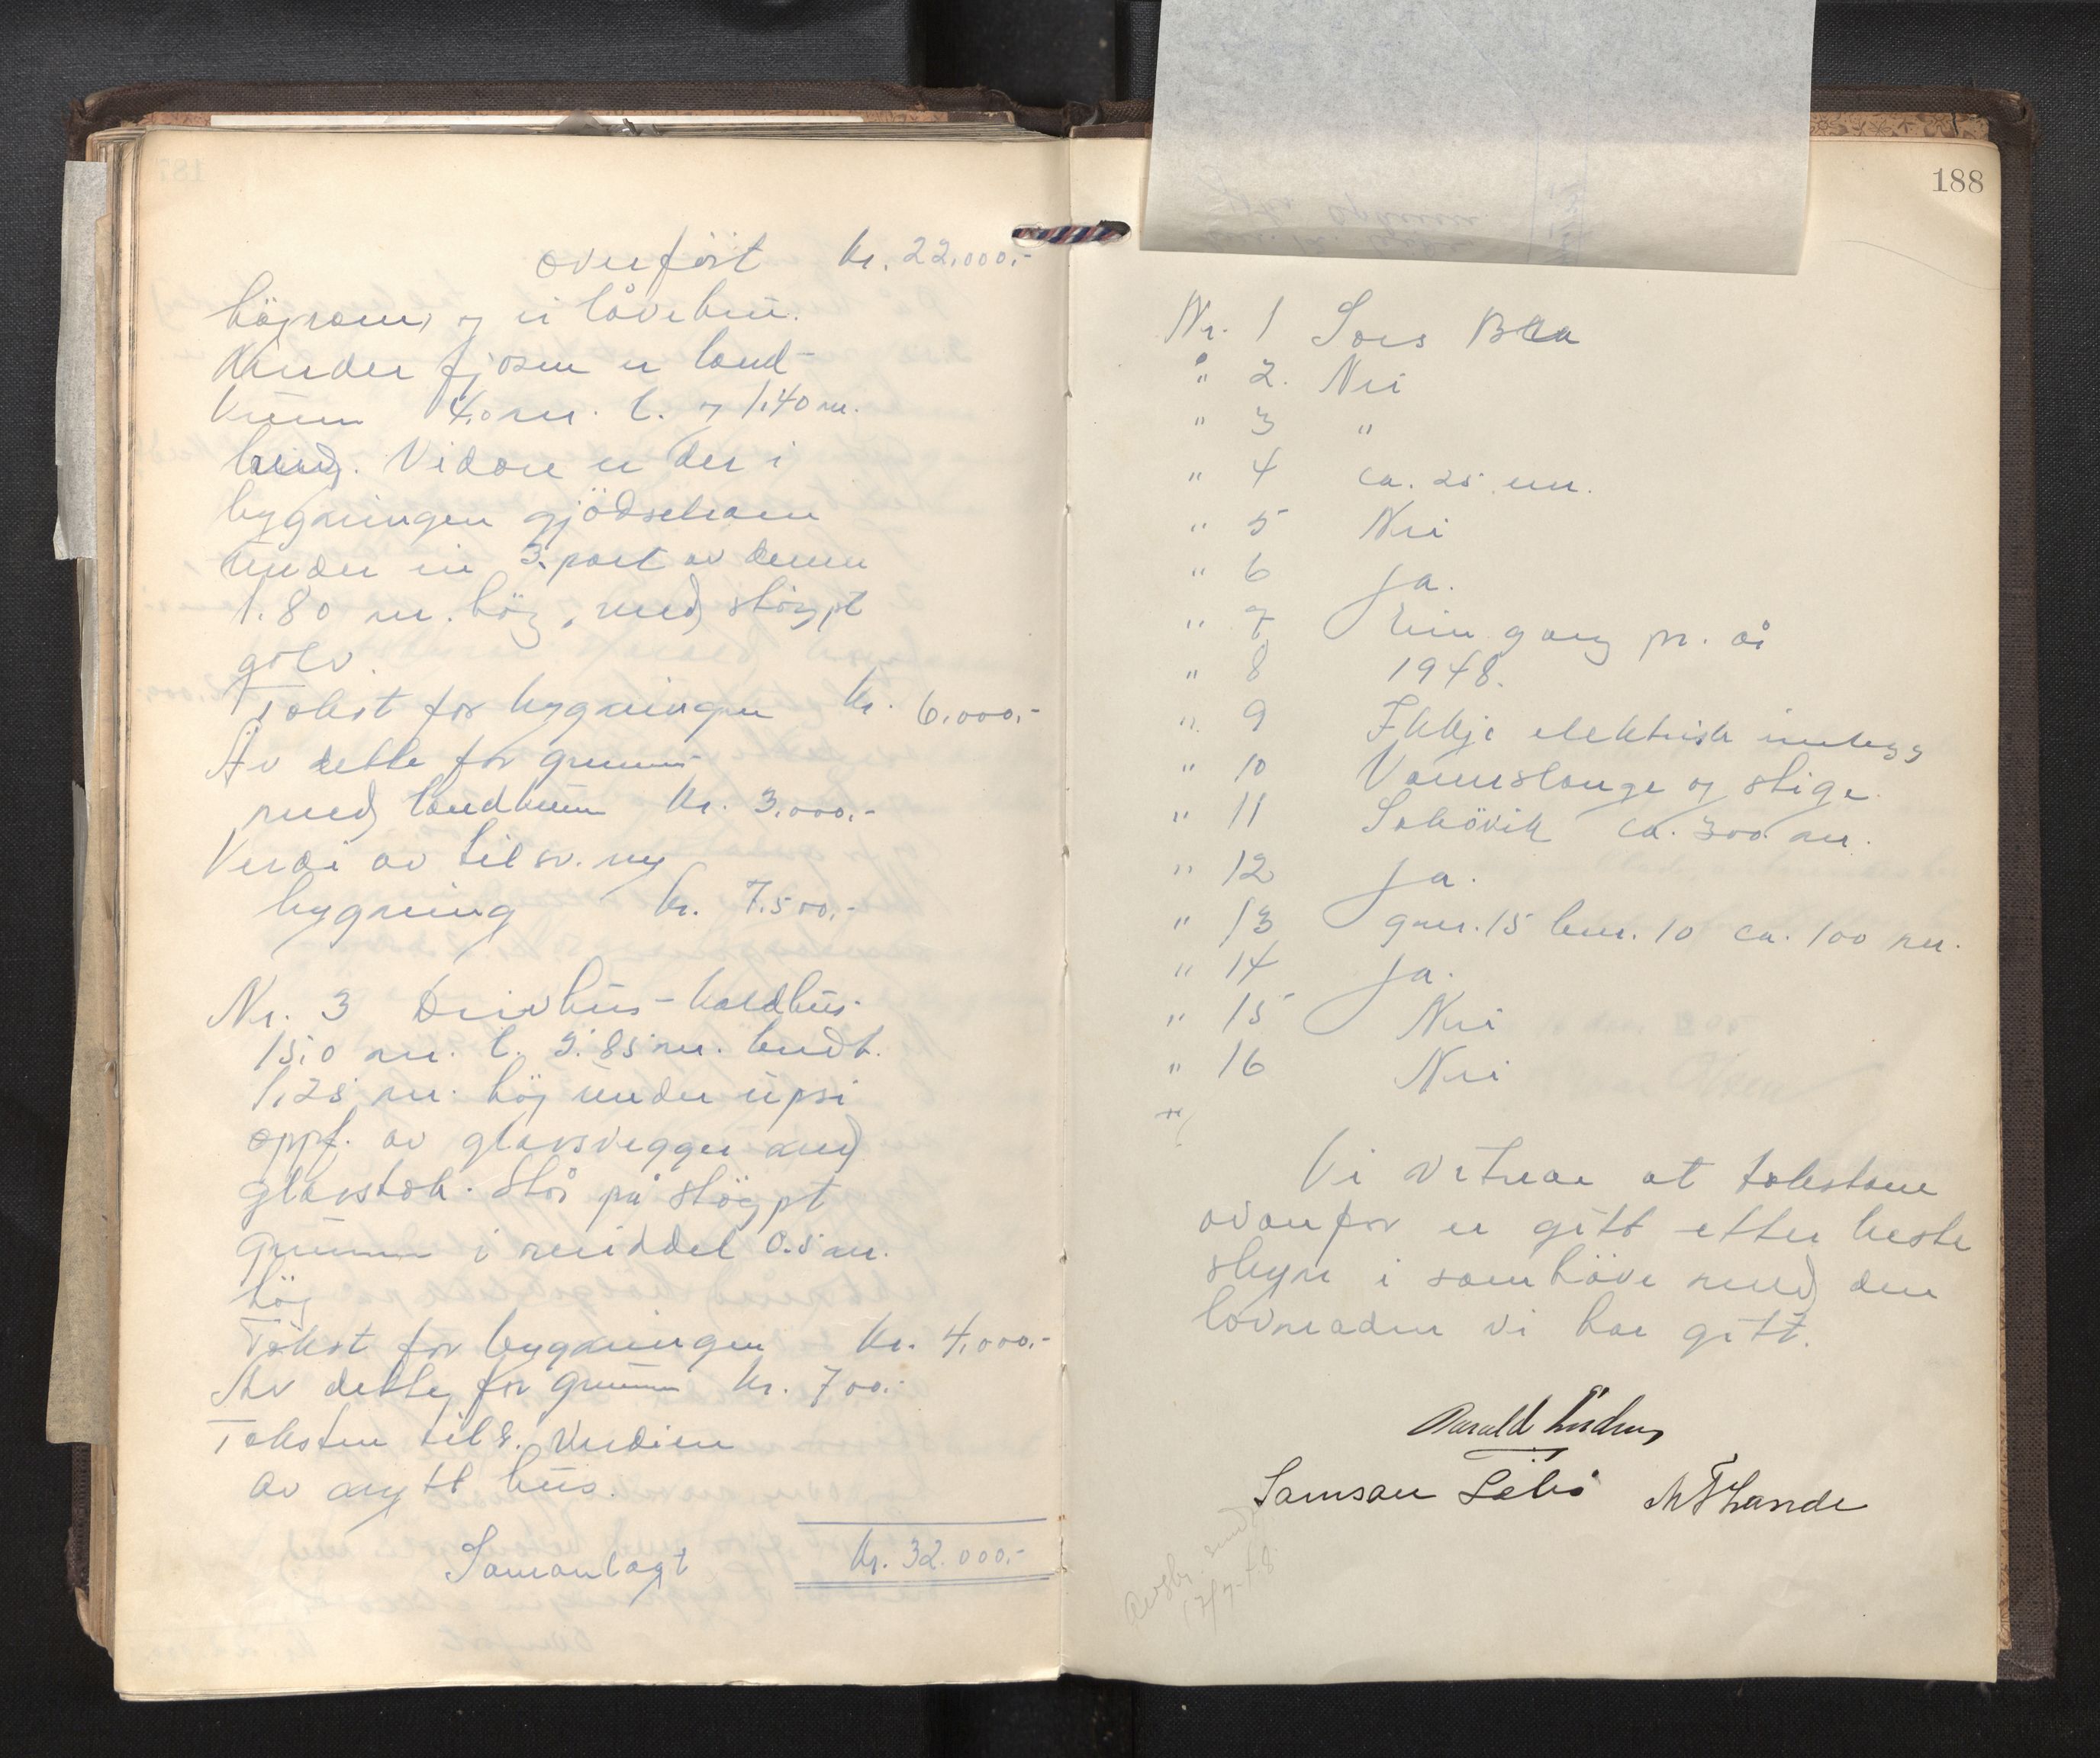 overført kr. 22.000.-
høyrom, og ei låvebru.
Under fjosen er land-
kum 4,0 m. l. og 1,40 m.
breid. Vidare er der i
bygningen gjödselrom
under ein 3. part av denne
1.80 m. hög, med stöypt
golv.
Takst for bygningen kr. 6.000.-
Av dette for grunn
med landkum kr. 3.000.-
Verdi av tilsv. ny
bygning kr. 7.500.-
Nr. 3 Drivhus - kaldhus
15,0 m. l. 3.85 m. breidt.
1,25 m. hög under upsi
oppf. av glasvegger med
glastak. Står på stöypt
grunn i middel 0.5 m.
hög
Takst for bygningen kr. 4.000.-
Av dette for grunn kr. 700.-
Taksten tils. verdien
av nytt hus.
Samanlagt kr. 32.000.-
188
Nr. 1 Sers Bra
" 2. Nei
" 3 "
" 4 ca. 25 m.
" 5 Nei
" 6 Ja.
" 7 Ein gang pr. år
" 8 1948.
" 9 Ikkje elektrisk innlegg
" 10 Vannslange og stige
" 11 ca. 300 m.
" 12 Ja.
" 13 gnr. 15 bnr. 10 ca. 100 m.
" 14 Ja.
" 15 Nei
" 16 Nei
Vi vitnar at takstane
ovanfor er gitt etter beste
skyn i samhöve med den
lovnaden vi har gitt.
Harald
Samson Lebö M T Lande
Avskr. sendt
17/7-48.